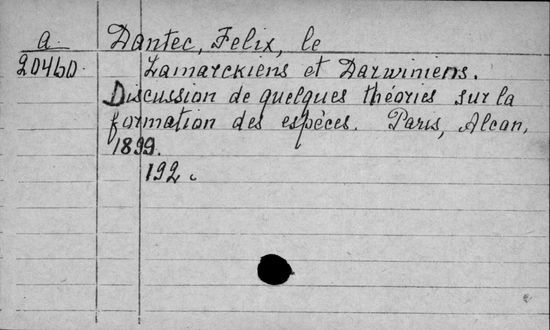 a Dantec, Felix, le
20460. Lamarckiens et Darwiniens.
Discussion de quelques théories sur la
formation des espéces. Paris, Alcan,
1899.
192.